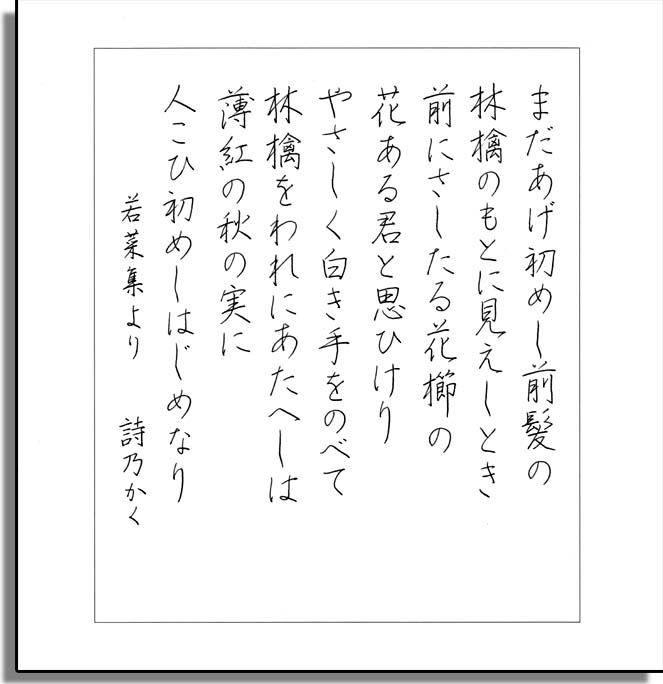 まだあげ初めし前髪の
林檎のもとに見えしとき
前にさしたる花櫛の
花ある君と思ひけり
やさしく白き手をのべて
林檎をわれにあたへしは
薄紅の秋の実に
人こひ初めしはじめなり
若菜集より 詩乃かく